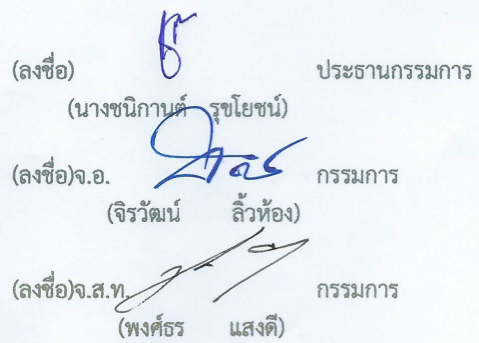 (ลงชื่อ) ประธานกรรมการ
(นางชนิกานต์ รุขโยชน์)
(ลงชื่อ)จ.อ. กรรมการ
(จิรวัฒน์ ลิ้วห้อง)
(ลงชื่อ)จ.ส.ท. กรรมการ
(พงศ์ธร แสงดี)